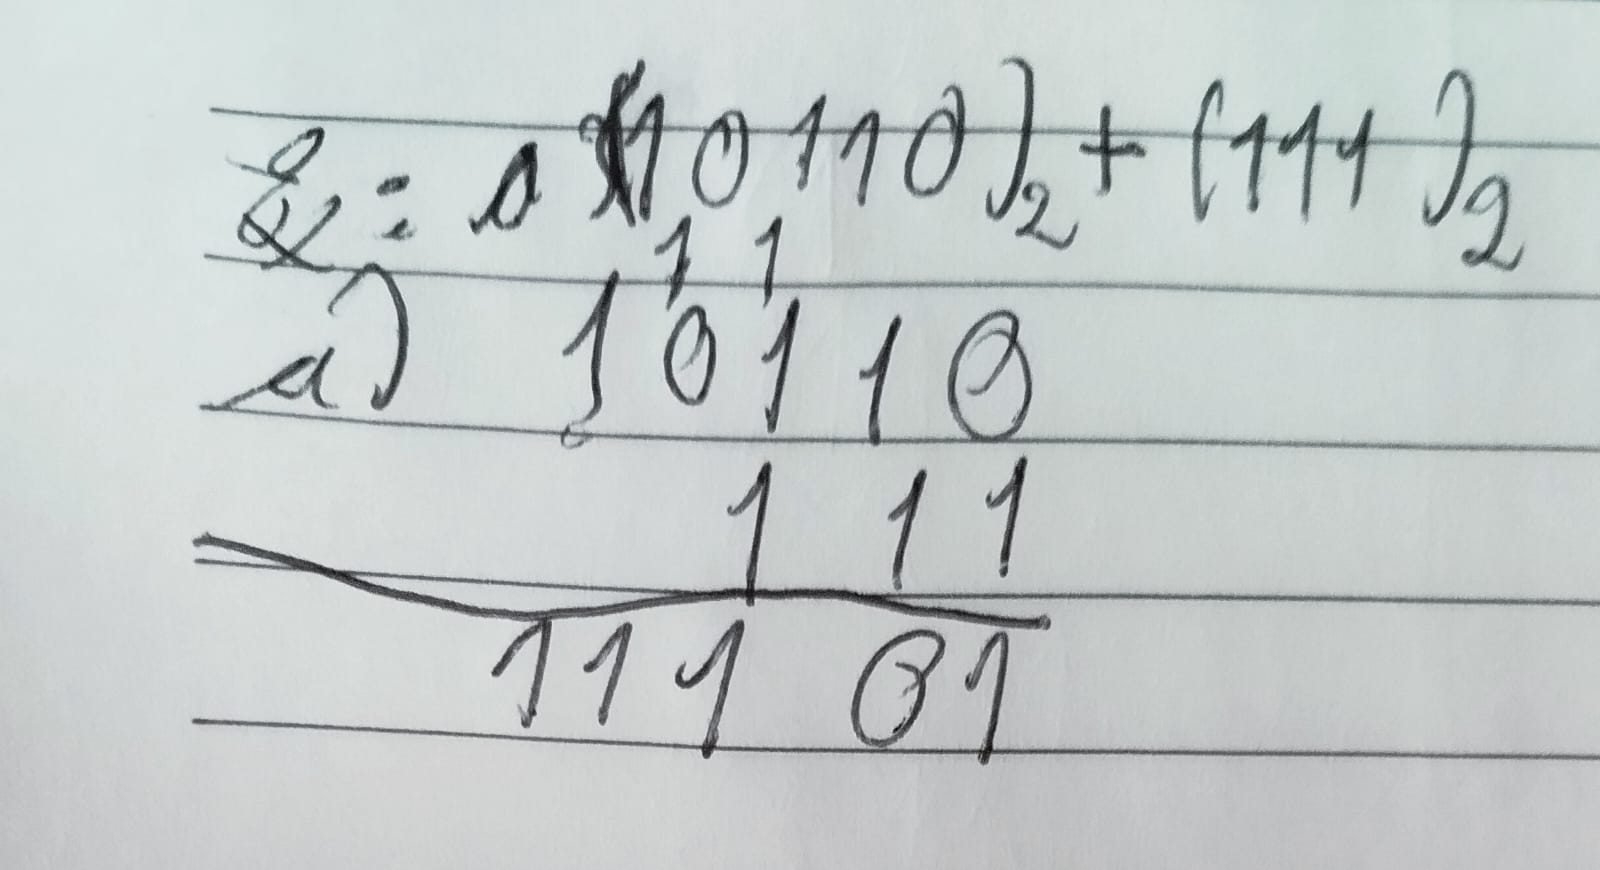 Q: (10110)₂ + (111)₂
1 1
a) 1 0 1 1 0
1 1 1
1 1 1 0 1